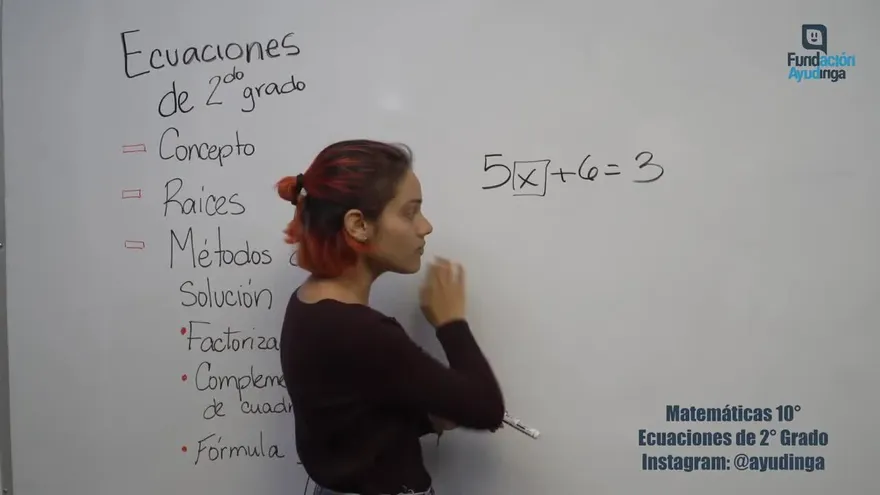 Ecuaciones
de 2do grado
Concepto
Raíces
Métodos
Solución
Factoriza
Compleme
de cuad
Fórmula
5x+6=3
Fundación
Ayudinga
Matemáticas 10°
Ecuaciones de 2° Grado
Instagram: @ayudinga